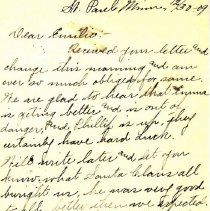 St. Paul Minn, 12/30-09
Dear Emilie:
Received your letter and
change this morning and am
ever so much obliged for same.
We are glad to hear that Emma
is geting better and is out of
danger, and Phillip is up, they
certainly have hard luck.
Will write later and let you
know what Santa Claus all
burught us, he was very good
to all better then we expected.